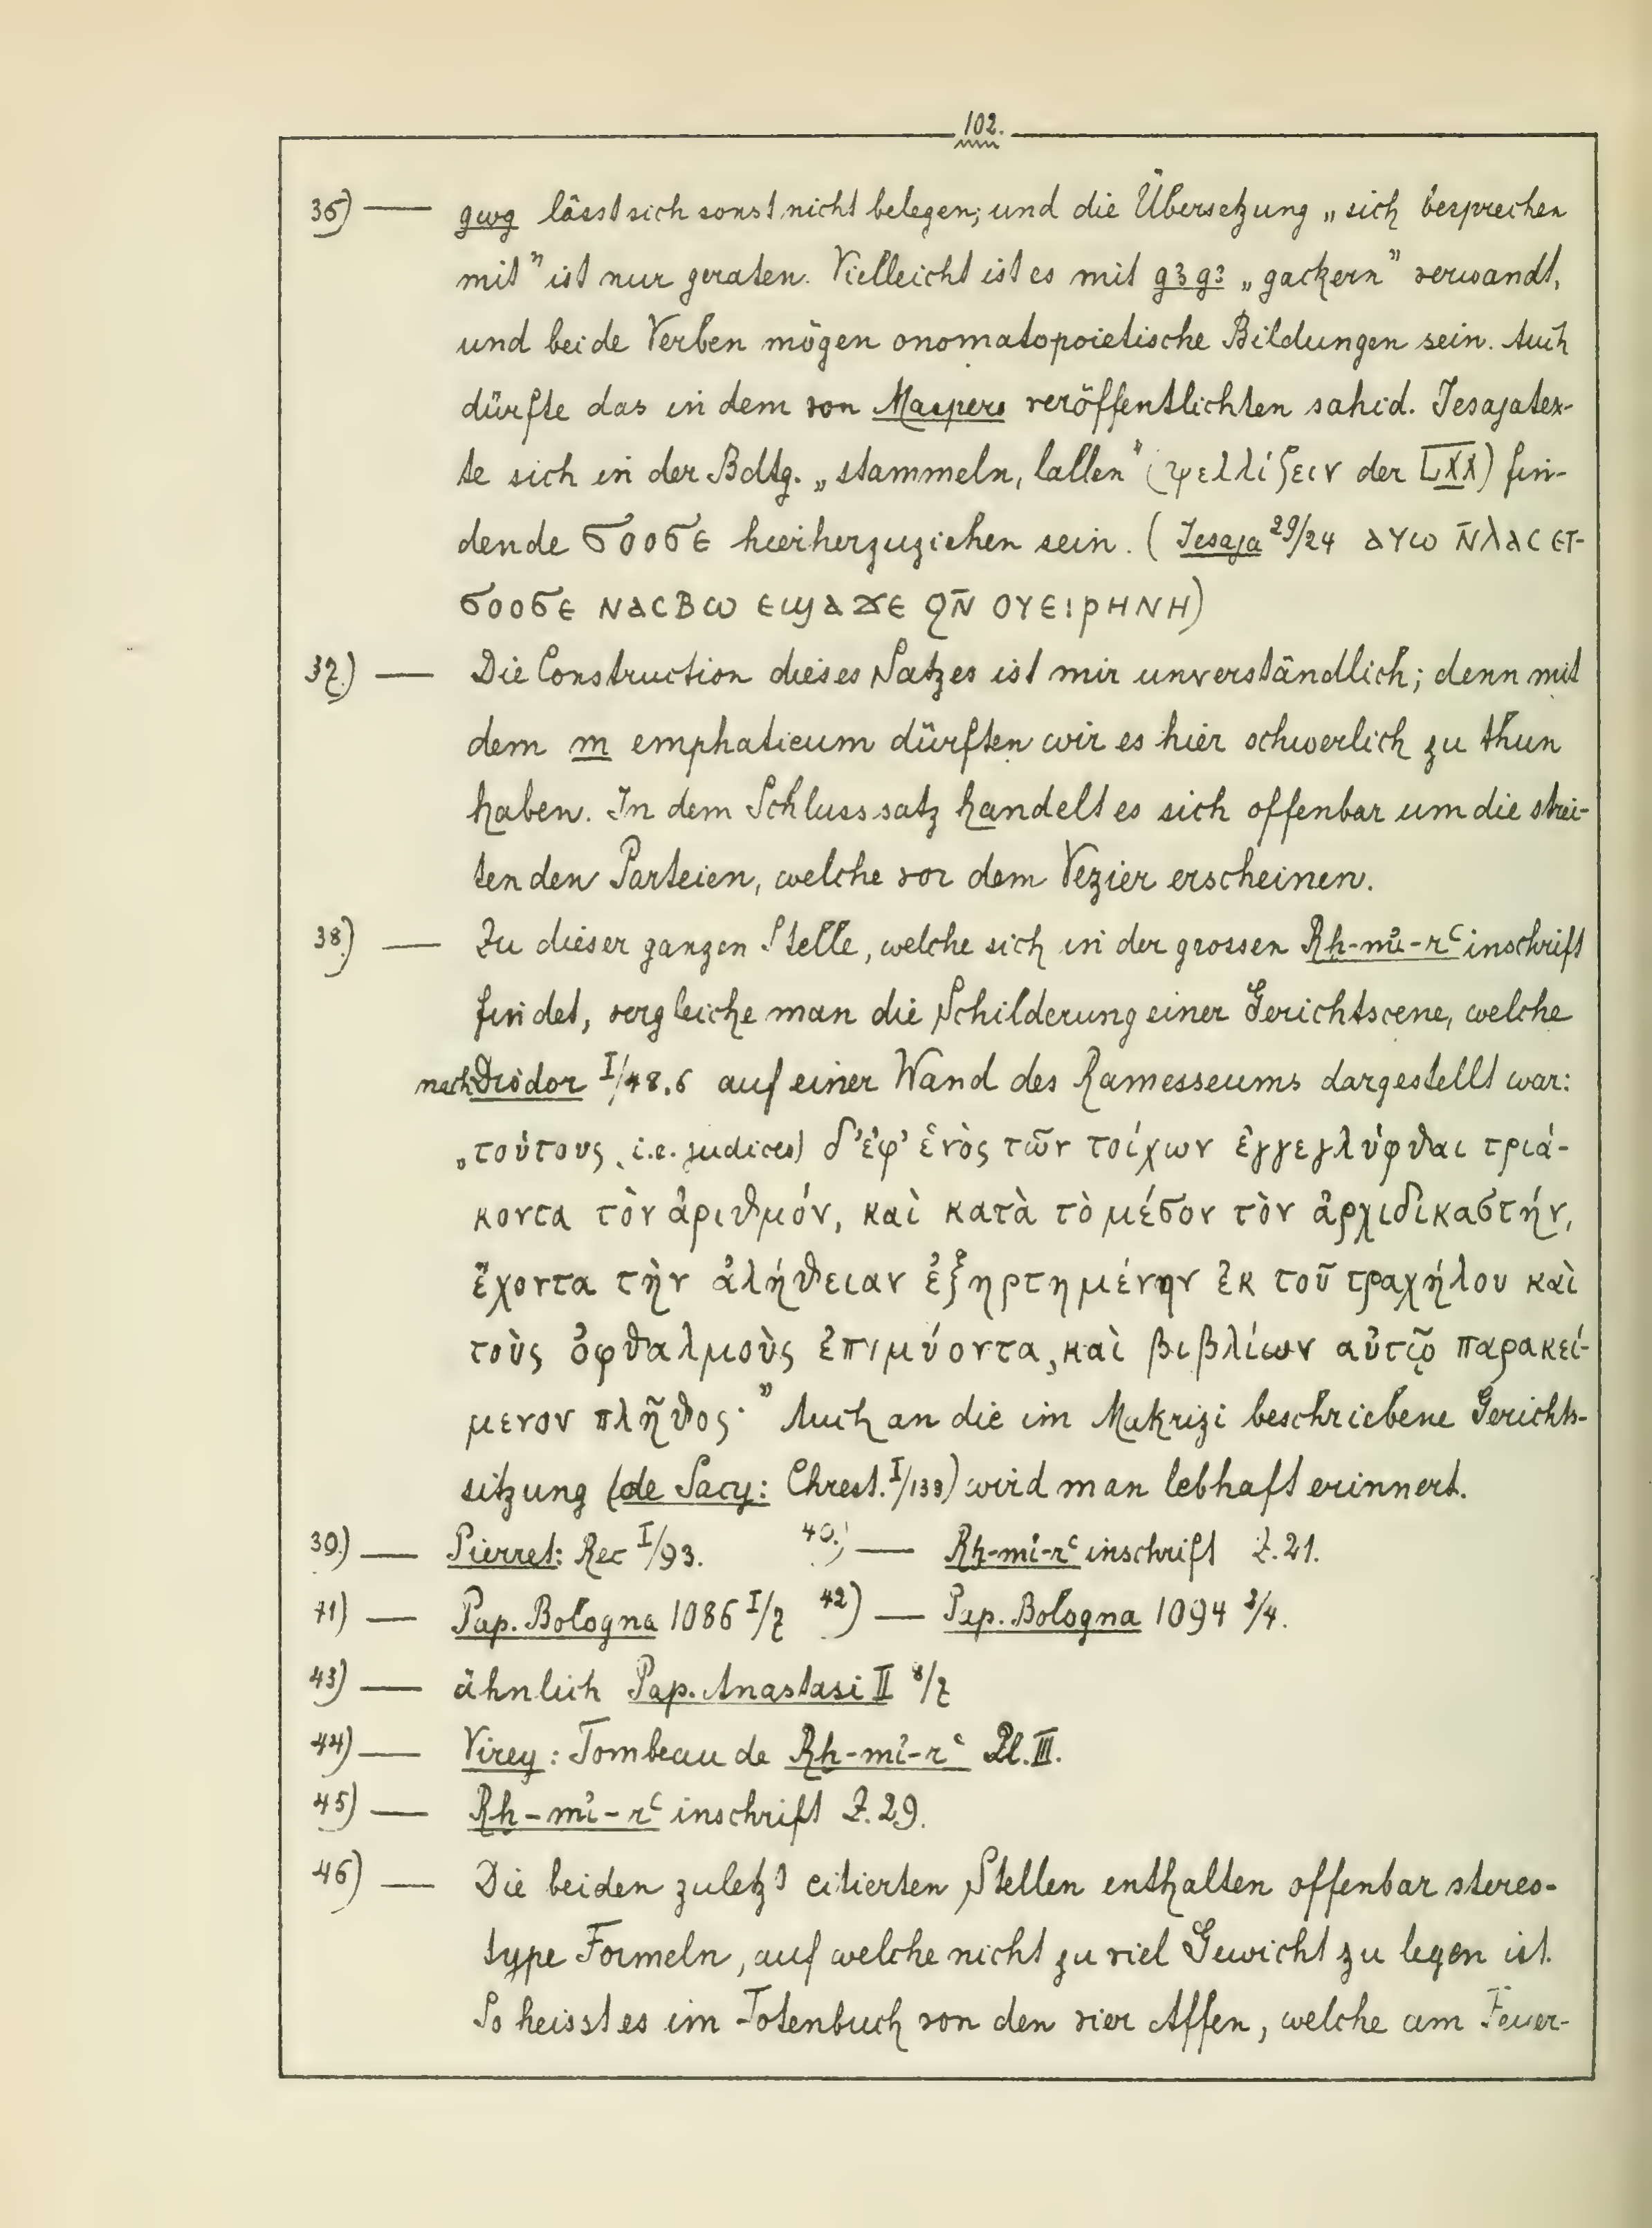 102.
36) — gwg lässt sich sonst nicht belegen; und die Übersetzung „sich besprechen
mit" ist nur geraten. Vielleicht ist es mit gꜣgꜣ „gackern" verwandt,
und beide Verben mögen onomatopoietische Bildungen sein. Auch
dürfte das in dem von Maspero veröffentlichten sahid. Jesajatex-
te sich in der Bdtg. „stammeln, lallen" (ψελλίζειν der LXX) fin-
dende ϭⲟⲟϭⲉ hierherzuziehen sein. (Jesaja 29/24 ⲁⲩⲱ ⲛ̄ⲗⲁⲥ ⲉⲧ-
ϭⲟⲟϭⲉ ⲛⲁⲥⲃⲱ ⲉϣⲁϫⲉ ϩⲛ̄ ⲟⲩⲉⲓⲣⲏⲛⲏ)
37.) — Die Construction dieses Satzes ist mir unverständlich; denn mit
dem m emphaticum dürften wir es hier schwerlich zu thun
haben. In dem Schlusssatz handelt es sich offenbar um die strei-
tenden Parteien, welche vor dem Vezier erscheinen.
38.) — Zu dieser ganzen Stelle, welche sich in der grossen Rh-mi-rʿ inschrift
findet, vergleiche man die Schilderung einer Gerichtscene, welche
nach Diodor I/48.6 auf einer Wand des Ramesseums dargestellt war:
„τούτους (i.e. judices) δ'ἐφ' ἑνὸς τῶν τοίχων ἐγγεγλύφθαι τριά-
κοντα τὸν ἀριθμόν, καὶ κατὰ τὸ μέσον τὸν ἀρχιδικαστήν,
ἔχοντα τὴν ἀλήθειαν ἐξηρτημένην ἐκ τοῦ τραχήλου καὶ
τοὺς ὀφθαλμοὺς ἐπιμύοντα, καὶ βιβλίων αὐτῷ παρακεί-
μενον πλῆθος·" Auch an die im Makrizi beschriebene Gerichts-
sitzung (de Sacy: Chrest. I/133) wird man lebhaft erinnert.
39.) — Pierret: Rec I/93. 40.) — Rh-mi-rʿ inschrift Z. 21.
41) — Pap. Bologna 1086 I/7 42) — Pap. Bologna 1094 3/4.
43) — ähnlich Pap. Anastasi II 8/7
44) — Virey: Tombeau de Rh-mi-rʿ Pl. III.
45) — Rh-mi-rʿ inschrift Z. 29.
46) — Die beiden zuletzt citierten Stellen enthalten offenbar stereo-
type Formeln, auf welche nicht zu viel Gewicht zu legen ist.
So heisst es im Totenbuch von den vier Affen, welche am Feuer-